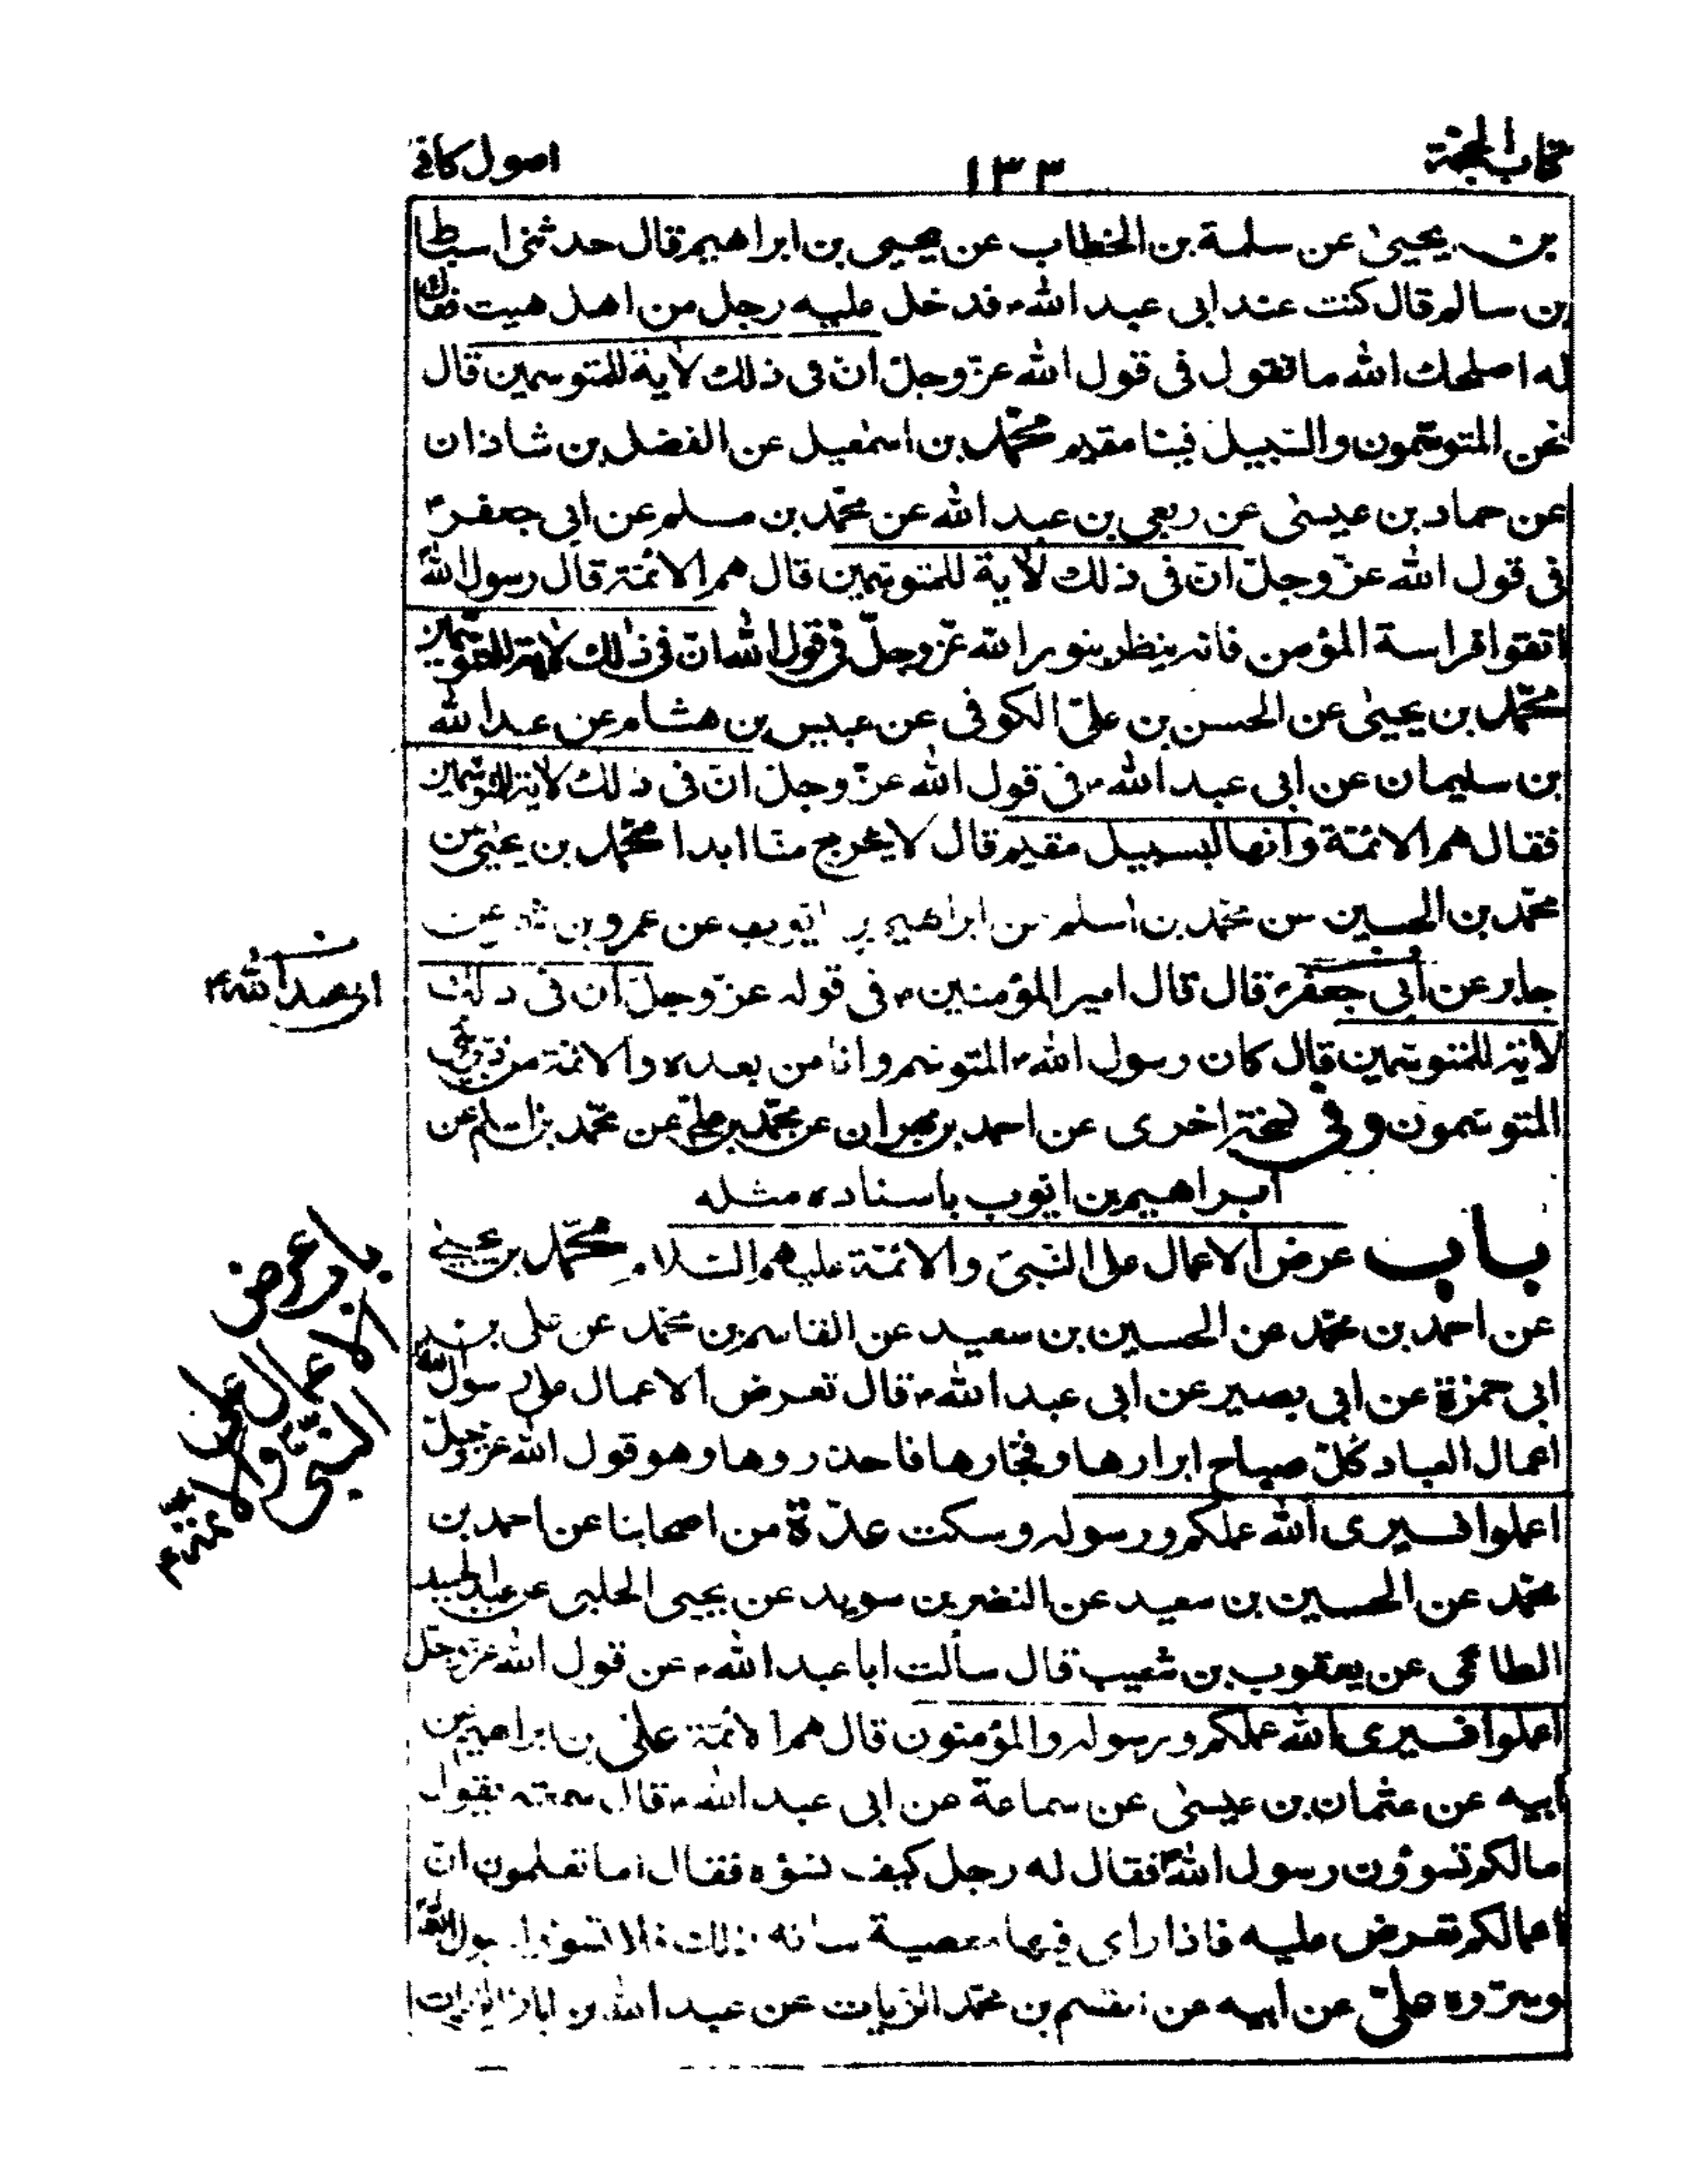 كتاب الحجة
١٣٣
اصول كافى
بن يحيىٰ عن سلمة بن الخطاب عن يحيى بن ابراهيم قال حدثنى اسباط
بن سالم قال كنت عند ابى عبد الله ؑ فدخل عليه رجل من اهل هيت فقال
له اصلحك الله ما تقول فى قول الله عزّ وجلّ انّ فى ذلك لاية للمتوسمين قال
نحن المتوسّمون والسّبيل فينا مقيم محمّد بن اسمٰعيل عن الفضل بن شاذان
عن حماد بن عيسىٰ عن ربعى بن عبد الله عن محمّد بن مسلم عن ابى جعفر ؑ
فى قول الله عزّ وجلّ انّ فى ذلك لاٰية للمتوسّمين قال هم الائمّة قال رسول الله ؐ
اتقوا فراسة المؤمن فانه ينظر بنور الله عزّ وجلّ فى قول الله انّ فى ذٰلك لاٰية للمتوسّمين
محمّد بن يحيىٰ عن الحسن بن علىّ الكوفى عن عبيس بن هشام عن عبد الله
بن سليمان عن ابى عبد الله ؑ فى قول الله عزّ وجلّ انّ فى ذلك لاية للمتوسّمين
فقال هم الائمّة وانّها لبسبيل مقيم قال لا يخرج منّا ابدا محمّد بن يحيىٰ عن
محمّد بن الحسين عن محمّد بن اسلم عن ابراهيم بن ايّوب عن عمرو بن شمر عن
جابر عن أبى جعفر ؑ قال قال امير المؤمنين ؑ فى قوله عزّ وجلّ انّ فى ذلك
لاية للمتوسّمين قال كان رسول الله ؐ المتوسّم وانا من بعده والائمّة من ذرّيّتى
المتوسّمون وفى نسخة اخرى عن احمد بن مهران عن محمّد بن علىّ عن محمّد بن اسلم عن
ابراهيم بن ايّوب باسناده مثله
باب عرض الاعمال على النّبىّ والائمّة عليهم السّلام محمّد بن يحيىٰ
عن احمد بن محمّد عن الحسين بن سعيد عن القاسم بن محمّد عن على بن
ابى حمزة عن ابى بصير عن ابى عبد الله ؑ قال تعرض الاعمال على رسول الله ؐ
اعمال العباد كلّ صباح ابرارها وفجّارها فاحذروها وهو قول الله عزّ وجلّ
اعملوا فسيرى الله عملكم ورسوله وسكت عدّة من اصحابنا عن احمد بن
محمّد عن الحسين بن سعيد عن النضر بن سويد عن يحيى الحلبى عن عبد الحميد
الطائى عن يعقوب بن شعيب قال سألت ابا عبد الله ؑ عن قول الله عزّ وجلّ
اعملوا فسيرى الله عملكم ورسوله والمؤمنون قال هم الائمّة علىّ بن ابراهيم عن
ابيه عن عثمان بن عيسىٰ عن سماعة عن ابى عبد الله ؑ قال سمعته يقول
مالكم تسوؤن رسول الله ؐ فقال له رجل كيف نسؤه فقال اما تعلمون انّ
اعمالكم تعرض عليه فاذا راى فيها معصية سائه ذلك فلا تسوؤا رسول الله ؐ
وسرّوه علىّ عن ابيه عن القسم بن محمّد الزيات عن عبد الله بن ابان الزيات
ابى عبد الله ؑ
باب عرض
الاعمال على
النبىّ ؐ والائمّة ؑ